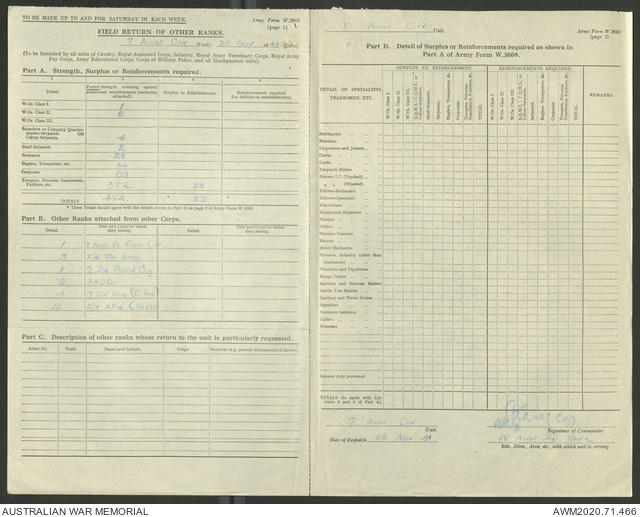 TO BE MADE UP TO AND FOR SATURDAY IN EACH WEEK.
Army Form W.3009
(page 1)
FIELD RETURN OF OTHER RANKS.
7 Aust Cav (Unit) 22 Nov 1941 (Date)
(To be furnished by all units of Cavalry, Royal Armoured Corps, Infantry, Royal Army Veterinary Corps, Royal Army
Pay Corps, Army Educational Corps, Corps of Military Police, and all Headquarters units).
Part A. Strength, Surplus or Reinforcements required.
Detail.
Posted strength counting against
authorised establishment (including
attached).
Surplus to Establishment.
Reinforcements required
(i.e. deficits on establishment).
W.Os. Class I. 1
W.Os. Class II. 6
W.Os. Class III.
Squadron or Company Quarter-
master-Serjeants OR
Colour-Serjeants 4
Staff Serjeants 2
Serjeants 28
Buglers, Trumpeters, etc.
Corporals
Troopers, Privates, Guardsmen,
Fusiliers, etc. 372 23
TOTALS 23
* These Totals should agree with the details shown in Part D on page 2 of Army Form W.3009.
Part B. Other Ranks attached from other Corps.
Detail.
Unit and Corps to which
they belong.
Detail.
Unit and Corps to which
they belong.
1
3
1 7 Div Postal Coy
2 AAOC
7 Div Sigs
12
Part C. Description of other ranks whose return to the unit is particularly requested.
Army No.
Rank.
Name and Initials.
Corps
Remarks (e.g. present whereabouts if known).
7 Aust Cav Unit.
Army Form W.3009
(page 2)
Part D. Detail of Surplus or Reinforcements required as shown in
Part A of Army Form W.3009.
SURPLUS TO ESTABLISHMENT.
REINFORCEMENTS REQUIRED.
DETAIL OF SPECIALISTS,
TRADESMEN, ETC.
W.Os. Class I.
W.Os. Class II.
W.Os. Class III.
S.Q.M.S., C.Q.M.S., or
Colour-Serjeants.
Staff Serjeants.
Serjeants.
Buglers, Trumpeters, &c.
Corporals
Troopers, Privates,
Guardsmen, Fusiliers, &c.
TOTAL.
W.Os. Class I.
W.Os. Class II.
W.Os. Class III.
Serjeants.
Buglers, Trumpeters, &c.
Corporals
TOTAL.
REMARKS
Bricklayers
Butchers
Carpenters and Joiners
Clerks
Cooks
Despatch Riders
Drivers I.C. (Tracked)
„ (Wheeled)
Drivers-Mechanics
Drivers-Operators
Electricians
Equipment Repairers
Farriers
Fitters
Machine Gunners
Masons
Motor Mechanics
Pioneers, Infantry (other than
tradesmen)
Plumbers and Pipefitters
Range Takers
Saddlers and Harness Makers
Saddle Tree Makers
Sanitary and Water Duties
Signallers
Storemen technical
Tailors
Wheelers
General duty personnel
TOTALS (to agree with Col-
umns 3 and 4 of Part A).
7 Aust Cav Unit.
Signature of Commander.
Date of Despatch 22 Nov 41
18 Aust Inf Bde
Bde., Divn., Area, etc., with which unit is serving.
AUSTRALIAN WAR MEMORIAL
AWM2020.71.466